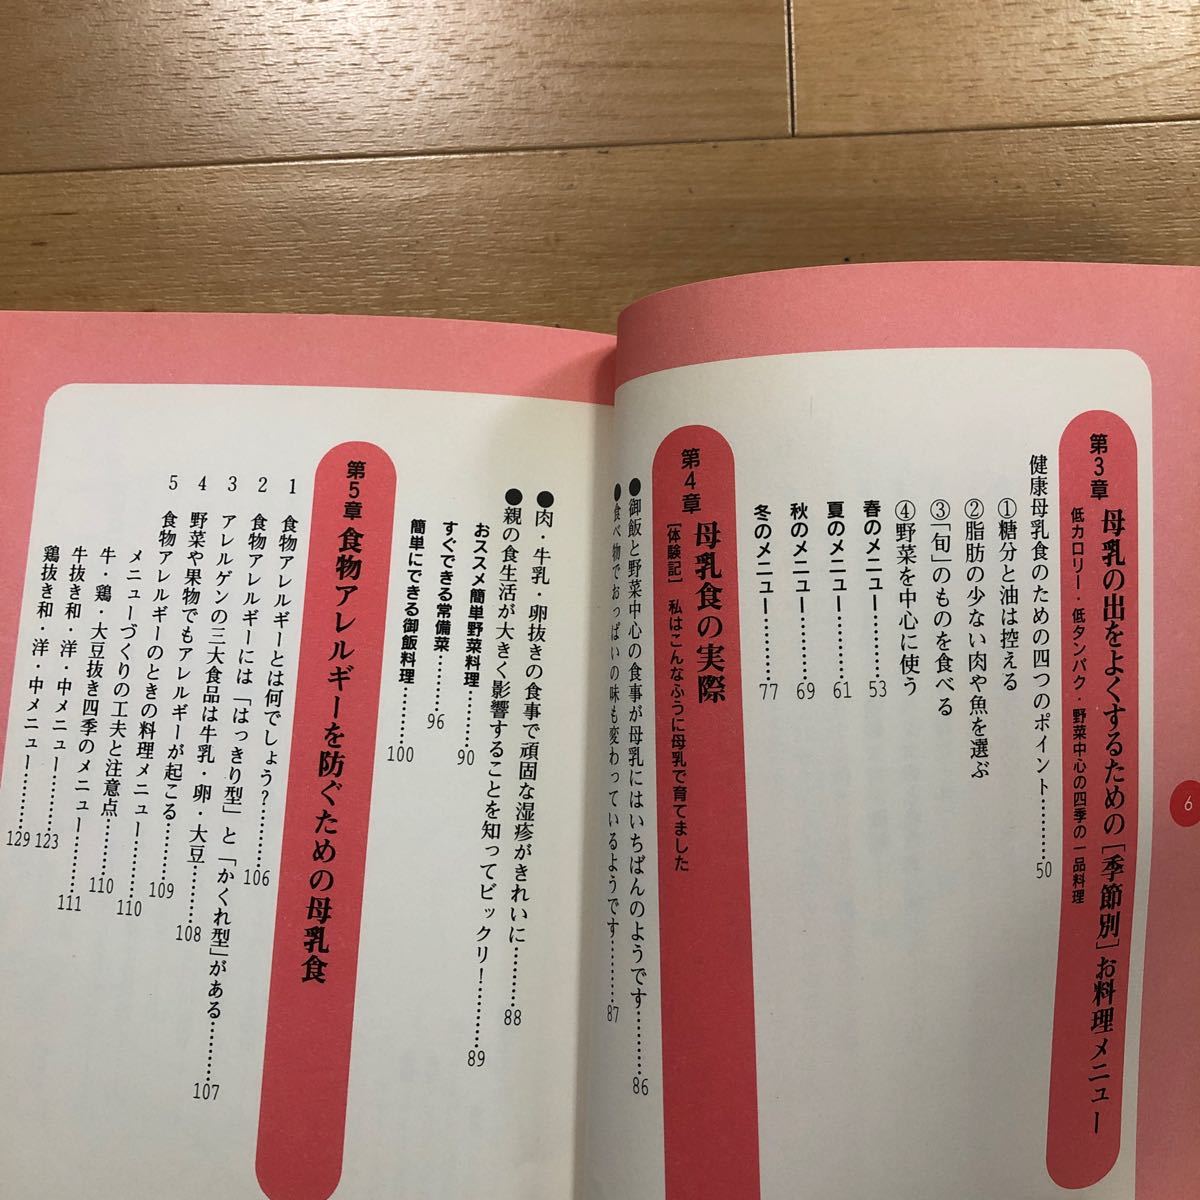 6
第3章 母乳の出をよくするための［季節別］お料理メニュー
低カロリー・低タンパク・野菜中心の四季の一品料理
健康母乳食のための四つのポイント……50
①糖分と油は控える
②脂肪の少ない肉や魚を選ぶ
③「旬」のものを食べる
④野菜を中心に使う
春のメニュー……53
夏のメニュー……61
秋のメニュー……69
冬のメニュー……77
第4章 母乳食の実際
［体験記］私はこんなふうに母乳で育てました
●御飯と野菜中心の食事が母乳にはいちばんのようです……86
●食べ物でおっぱいの味も変わっているようです……87
●肉・牛乳・卵抜きの食事で頑固な湿疹がきれいに……88
●親の食生活が大きく影響することを知ってビックリ！……89
おススメ簡単野菜料理……90
すぐできる常備菜……96
簡単にできる御飯料理……100
第5章 食物アレルギーを防ぐための母乳食
1 食物アレルギーとは何でしょう？……106
2 食物アレルギーには「はっきり型」と「かくれ型」がある……107
3 アレルゲンの三大食品は牛乳・卵・大豆……108
4 野菜や果物でもアレルギーが起こる……109
5 食物アレルギーのときの料理メニュー……110
メニューづくりの工夫と注意点……110
牛・鶏・大豆抜き四季のメニュー……111
牛抜き和・洋・中メニュー……123
鶏抜き和・洋・中メニュー……129